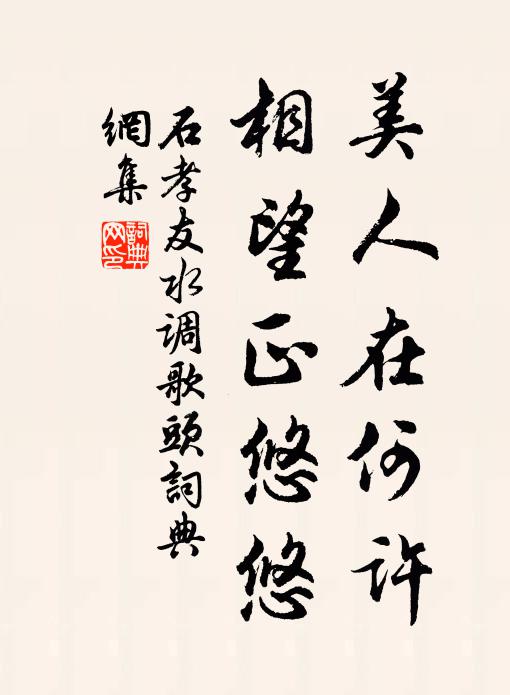 美人在何许
相望正悠悠
石孝友水调歌頭詞典
網集
詞典
网印